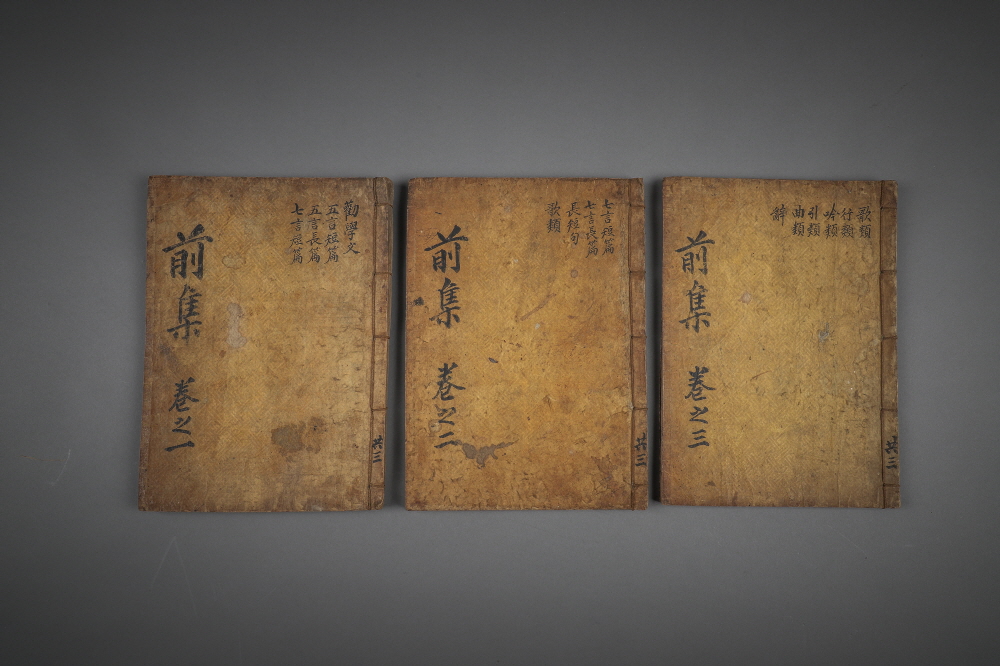 前集 卷之一
勸學文
五言短篇
五言長篇
七言短篇
共三
前集 卷之二
七言短篇
七言長篇
長短句
歌類
共三
前集 卷之三
歌類
行類
吟類
引類
曲類
辭
共三